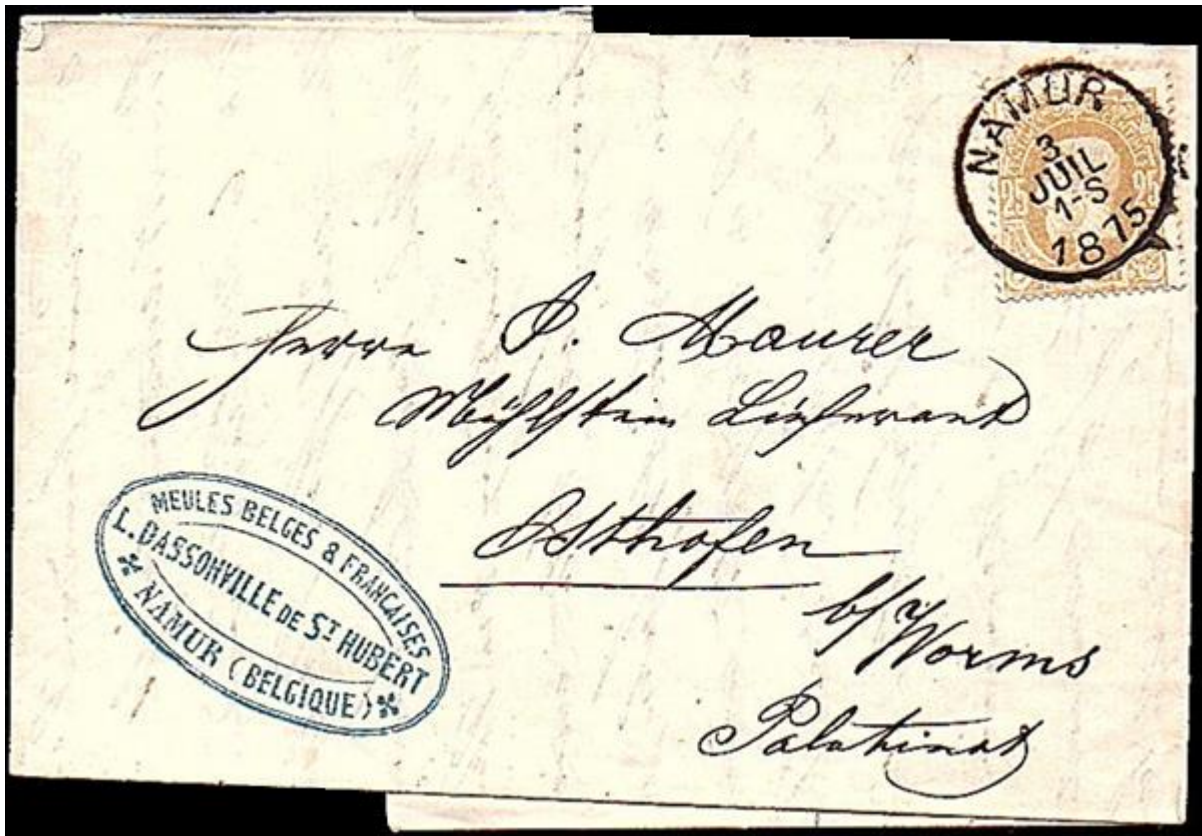 NAMUR
3
JUIL
1-S
1875
25 25
Herrn J. Maurer
Mühlstein Lieferant
Osthofen
b/Worms
Palatinat
MEULES BELGES & FRANÇAISES
L. DASSONVILLE DE ST HUBERT
NAMUR (BELGIQUE)